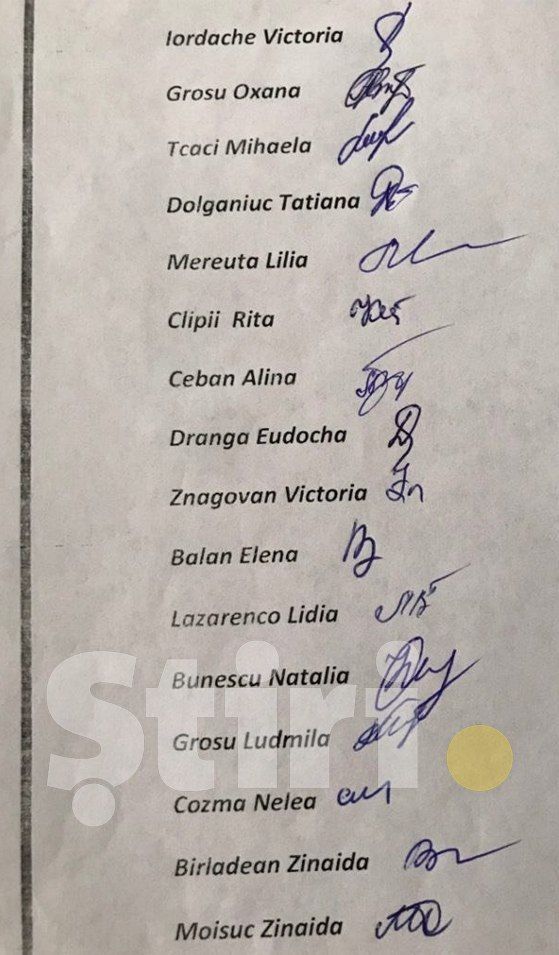 Iordache Victoria
Grosu Oxana
Tcaci Mihaela
Dolganiuc Tatiana
Mereuta Lilia
Clipii Rita
Ceban Alina
Dranga Eudocha
Znagovan Victoria
Balan Elena
Lazarenco Lidia
Bunescu Natalia
Știri.
Grosu Ludmila
Cozma Nelea
Birladean Zinaida
Moisuc Zinaida